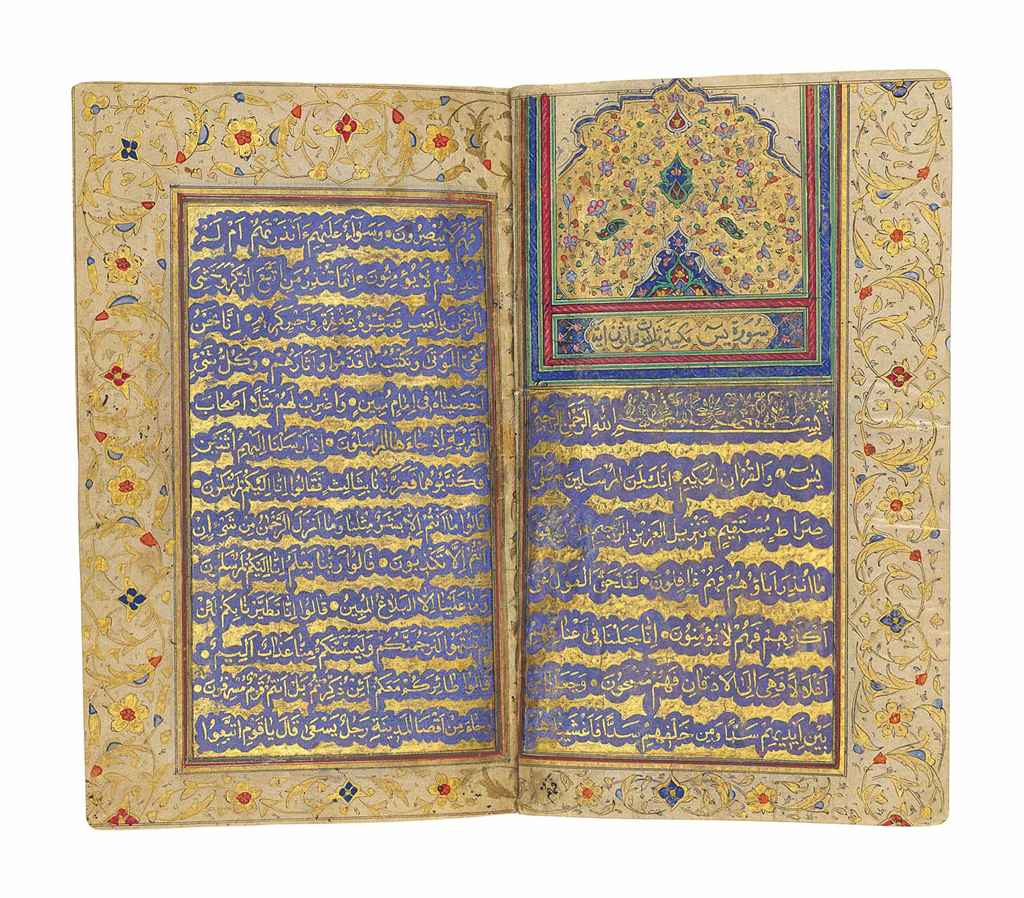 سورة يس مكية ثلاث وثمانون آية
بسم الله الرحمن
يس والقرآن الحكيم انك لمن المرسلين على
صراط مستقيم تنزيل العزيز الرحيم
ما انذر اباؤهم فهم غافلون لقد حق القول على
اكثرهم فهم لا يؤمنون انا جعلنا في اعناقهم
اغلالا فهي الى الاذقان فهم مقمحون وجعلنا
بين ايديهم سدا ومن خلفهم سدا فاغشيناهم
فهم لا يبصرون وسواء عليهم ءانذرتهم ام لم
تنذرهم لا يؤمنون انما تنذر من اتبع الذكر وخشي
الرحمن بالغيب فبشره بمغفرة واجر كريم انا نحن
نحي الموتى ونكتب ما قدموا واثارهم وكل شئ
احصيناه في امام مبين واضرب لهم مثلا اصحاب
القرية اذ جاءها المرسلون اذ ارسلنا اليهم اثنين
فكذبوهما فعززنا بثالث فقالوا انا اليكم مرسلون
قالوا ما انتم الا بشر مثلنا وما انزل الرحمن من شئ ان
انتم الا تكذبون قالوا ربنا يعلم انا اليكم لمرسلون
وما علينا الا البلاغ المبين قالوا انا تطيرنا بكم لئن
لم تنتهوا لنرجمنكم وليمسنكم منا عذاب اليم
قالوا طائركم معكم ائن ذكرتم بل انتم قوم مسرفون
وجاء من اقصا المدينة رجل يسعى قال يا قوم اتبعوا